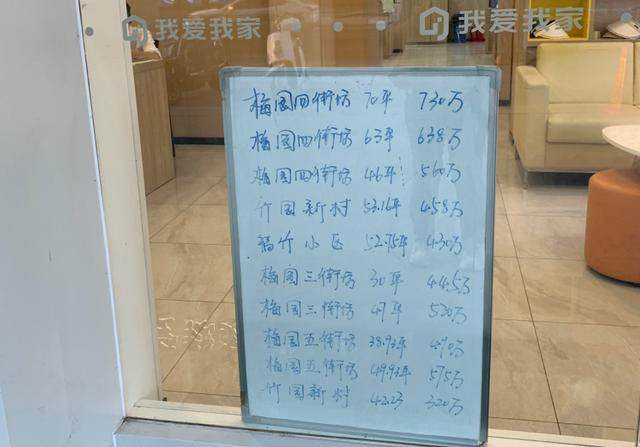 我爱我家
我爱我家
梅园四街坊 70平 730万
梅园四街坊 63平 638万
梅园四街坊 46平 560万
竹园新村 53.16平 458万
福竹小区 52.75平 430万
梅园三街坊 30平 445万
梅园三街坊 47平 520万
梅园五街坊 38.93平 490万
梅园五街坊 49.93平 575万
竹园新村 42.23 320万